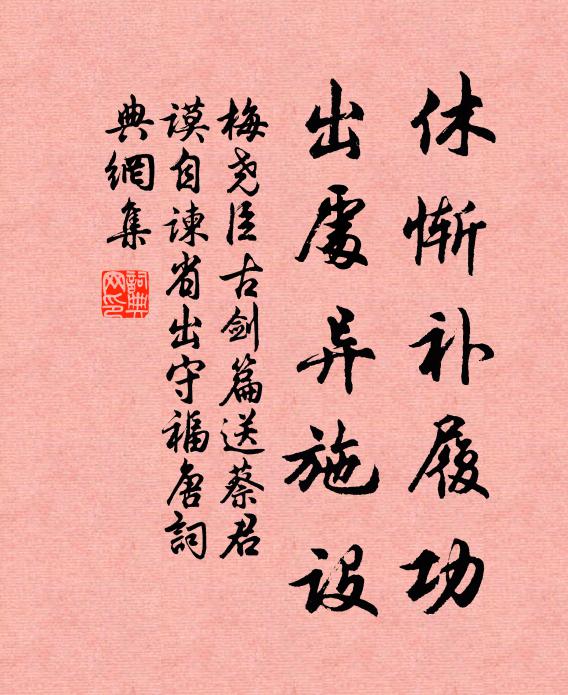 休惭补履功
出處异施设
梅尧臣古剑篇送蔡君
谟自谏省出守福唐詞
典網集
詞典
网印